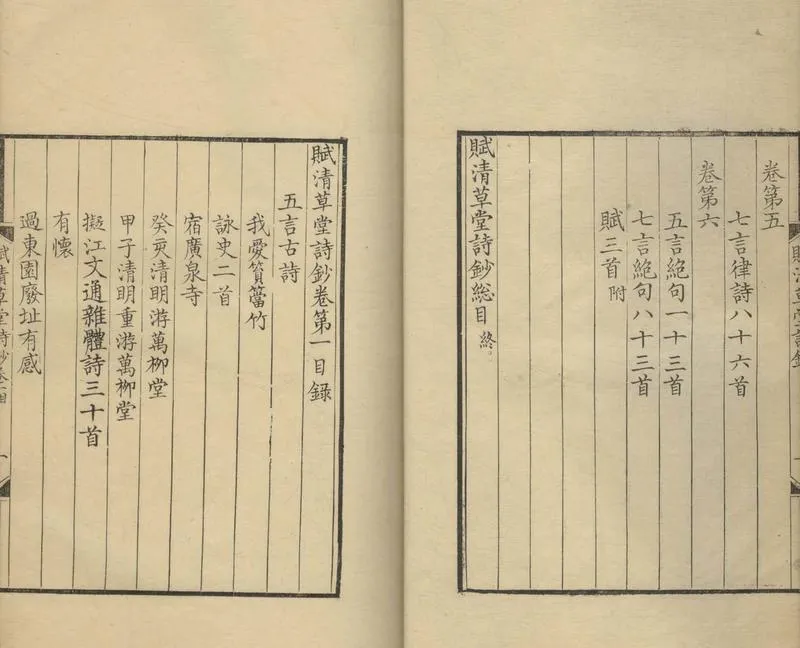 卷第五
七言律詩八十六首
卷第六
五言絕句一十三首
七言絕句八十三首
賦三首附
賦清草堂詩鈔總目終
賦清草堂詩鈔卷第一目錄
五言古詩
我愛篔簹竹
詠史二首
宿廣泉寺
癸亥清明游萬柳堂
甲子清明重游萬柳堂
擬江文通雜體詩三十首
有懷
過東園廢址有感